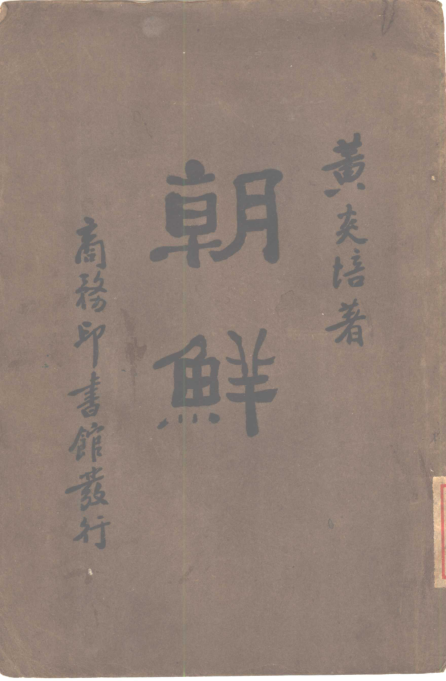 黃炎培著
朝鮮
商務印書館發行